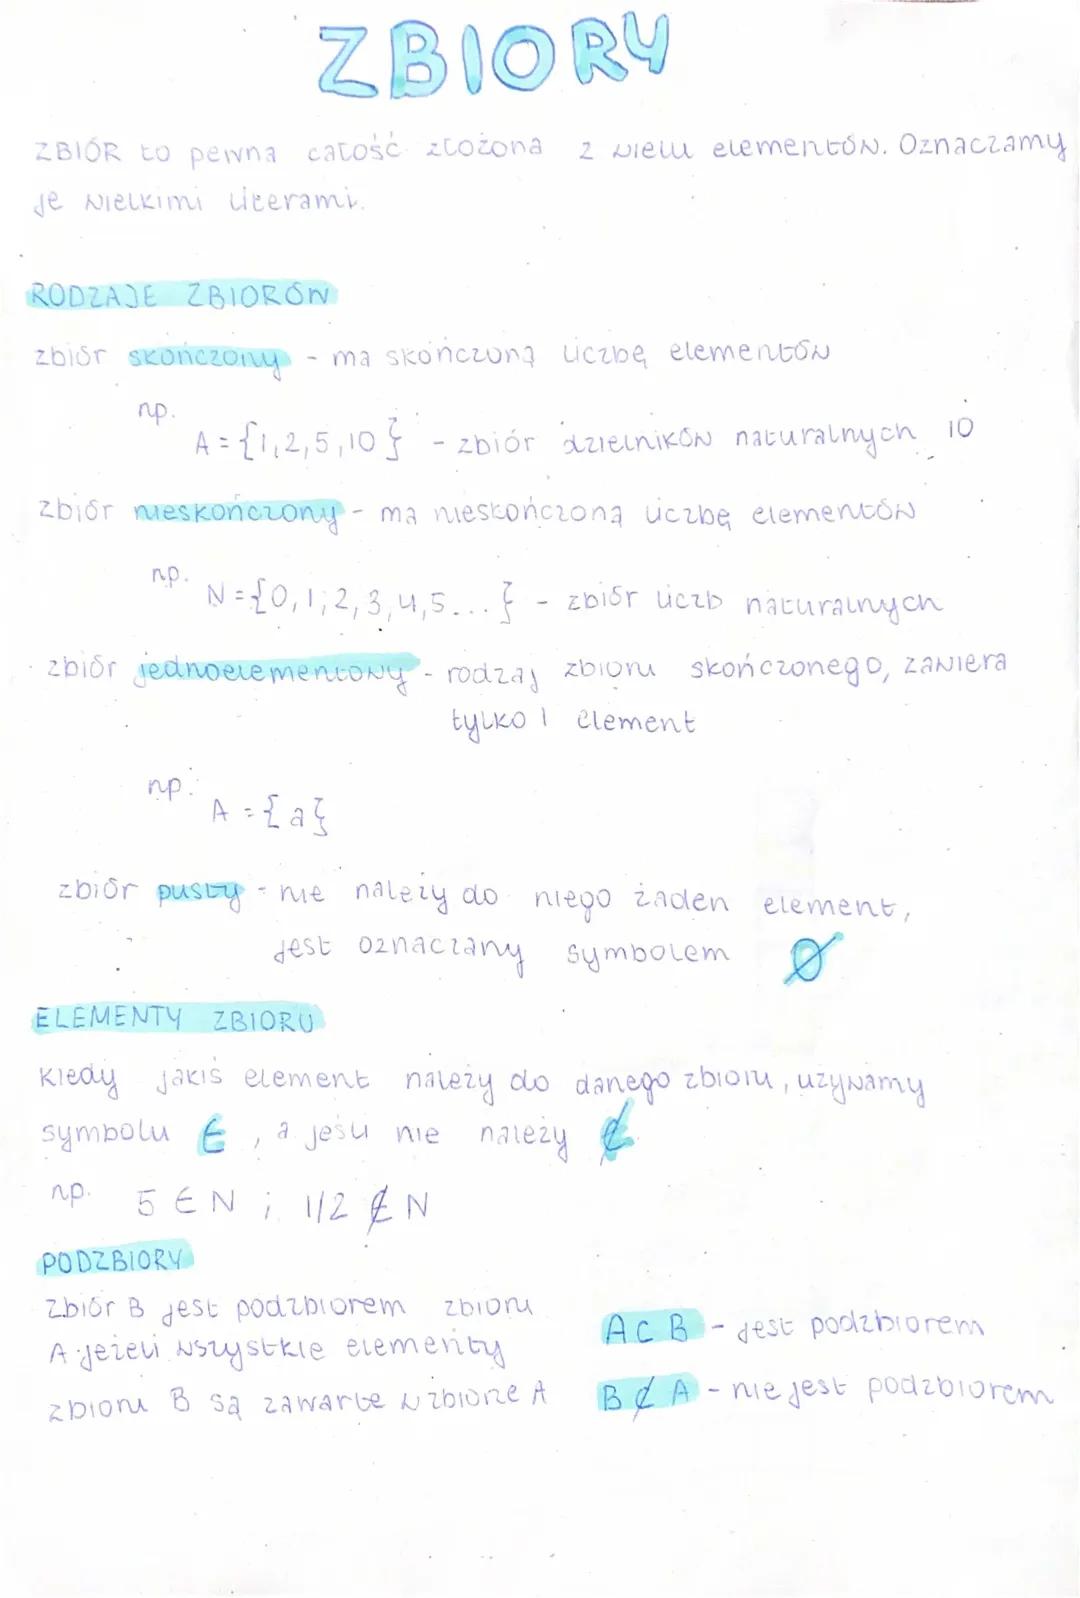 ZBIORY
ZBIÓR to pewna całość złożona z wielu elementów. Oznaczamy
je wielkimi literami.
RODZAJE ZBIORÓW
zbiór skończony - ma skończoną liczbę elementów
np.
A = {1,2,5,10} - zbiór dzielników naturalnych 10
zbiór nieskończony - ma nieskończoną liczbę elementów
np.
N = {0,1,2,3,4,5...} - zbiór liczb naturalnych
zbiór jednoelementowy - rodzaj zbioru skończonego, zawiera
tylko 1 element
np.
A = {a}
zbiór pusty - nie należy do niego żaden element,
jest oznaczany symbolem ∅
ELEMENTY ZBIORU
Kiedy jakiś element należy do danego zbioru, używamy
symbolu ∈, a jeśli nie należy ∉
np. 5 ∈ N ; 1/2 ∉ N
PODZBIORY
Zbiór B jest podzbiorem zbioru
A jeżeli wszystkie elementy
zbioru B są zawarte w zbiorze A
A ⊂ B - jest podzbiorem
B ⊄ A - nie jest podzbiorem